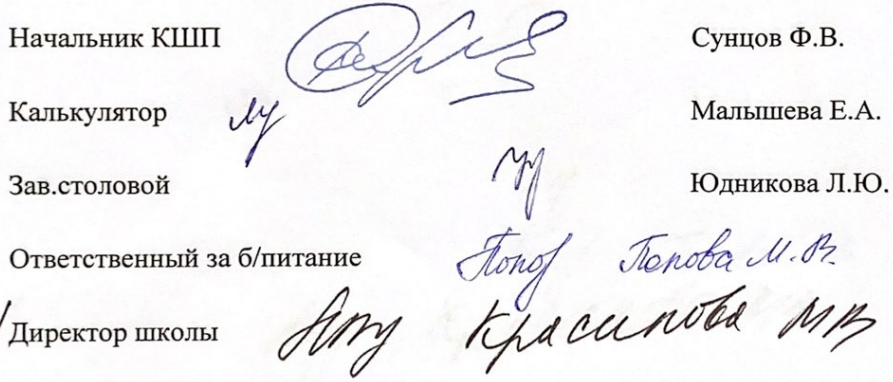 Начальник КШП Сунцов Ф.В.
Калькулятор Малышева Е.А.
Зав.столовой Юдникова Л.Ю.
Ответственный за б/питание Попова М.В.
Директор школы М В